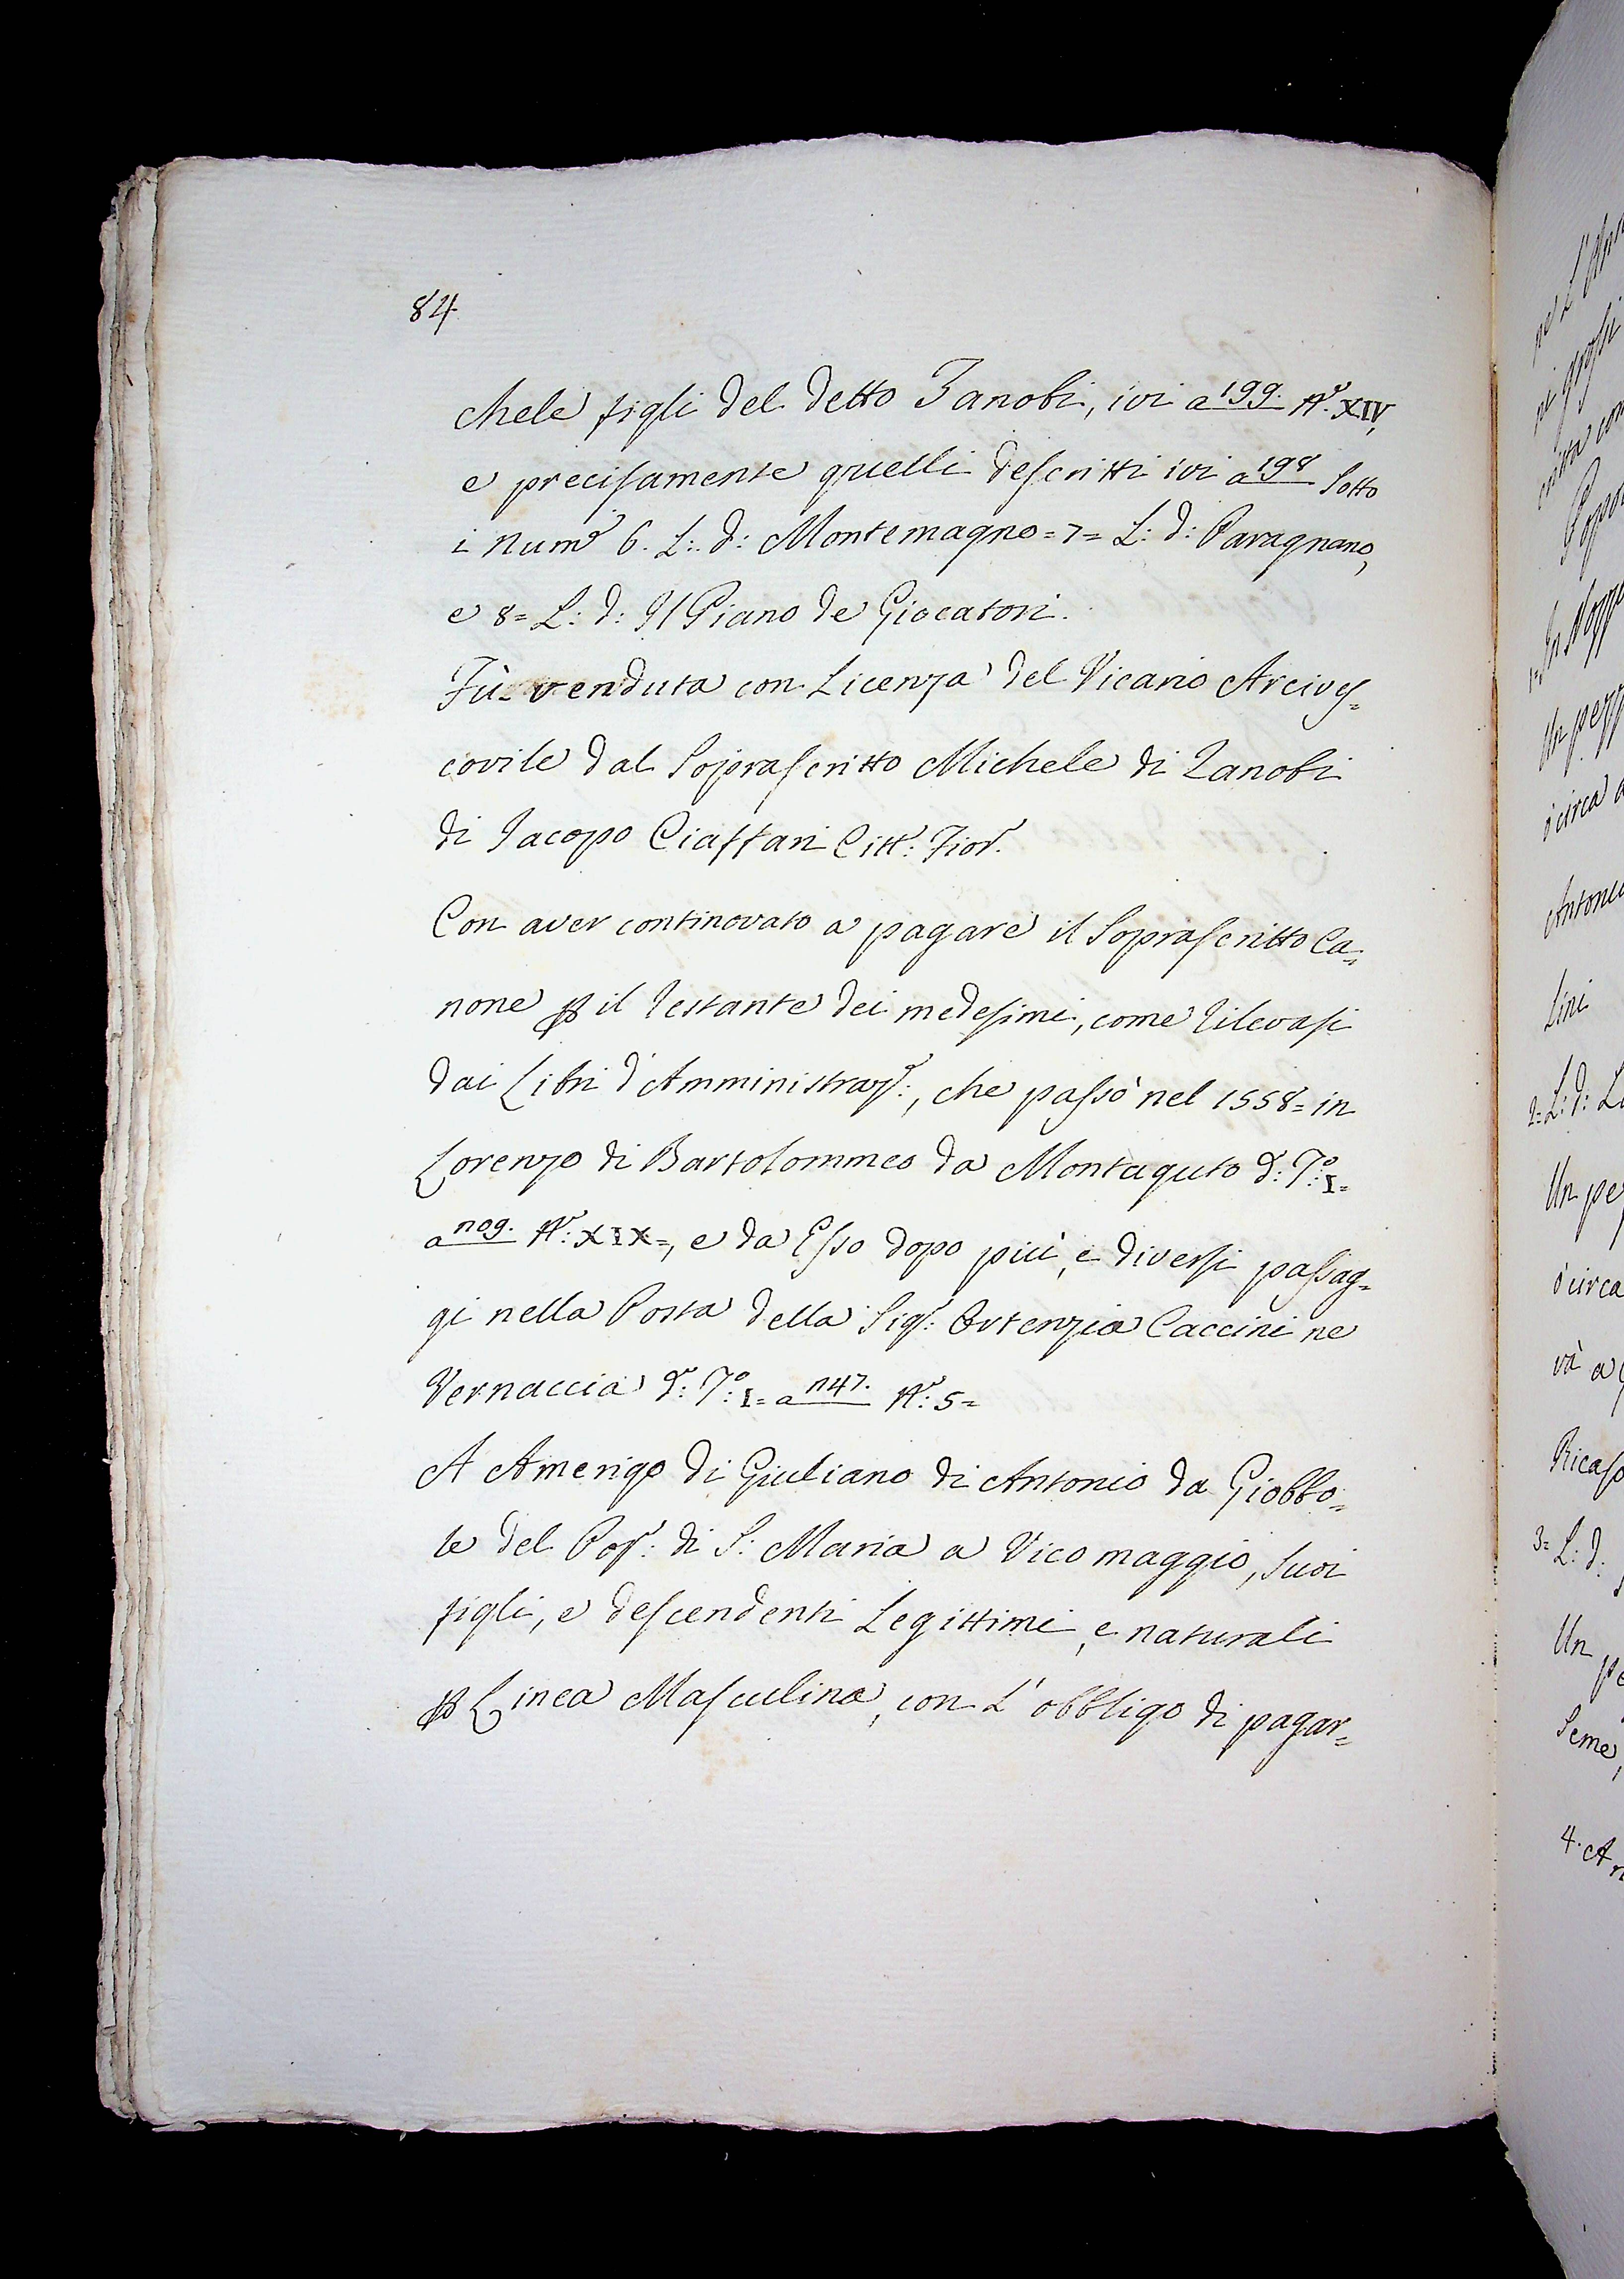 84
chele figli del detto Zanobi, ivi a 199. N.º XIV,
e precisamente quelli descritti ivi a 198 sotto
i Num.º 6. L: d: Montemagno = 7 = L: d: Paragnano,
e 8 = L: d: Il Piano de Giocatori.
Fù venduta con Licenza del Vicario Arcives=
covile dal Soprascritto Michele di Zanobi
di Iacopo Ciaffari Citt: Fior.º
Con aver continovato a pagare il Soprascritto Ca=
none ꝑ il restante dei medesimi, come rilevasi
dai Libri d'Amministraz.º:, che passò nel 1558 = in
Lorenzo di Bartolommeo da Montaguto d.º: T.º: I =
a 109. N.º: XIX =, e da Esso dopo più, e diversi passag=
gi nella Posta della Sig.ª: Ortenzia Caccini ne
Vernaccia d.º: T.º: I = a 147. N.º: 5 =
A Amerigo di Giuliano di Antonio da Giobbo=
le del Pop.º: di S: Maria a Vicomaggio, suoi
figli, e descendenti Legittimi, e naturali
ꝑ Linea Masculina, con L'obbligo di pagar=
Antonio
lini
Un pe
Un pe
Seme,